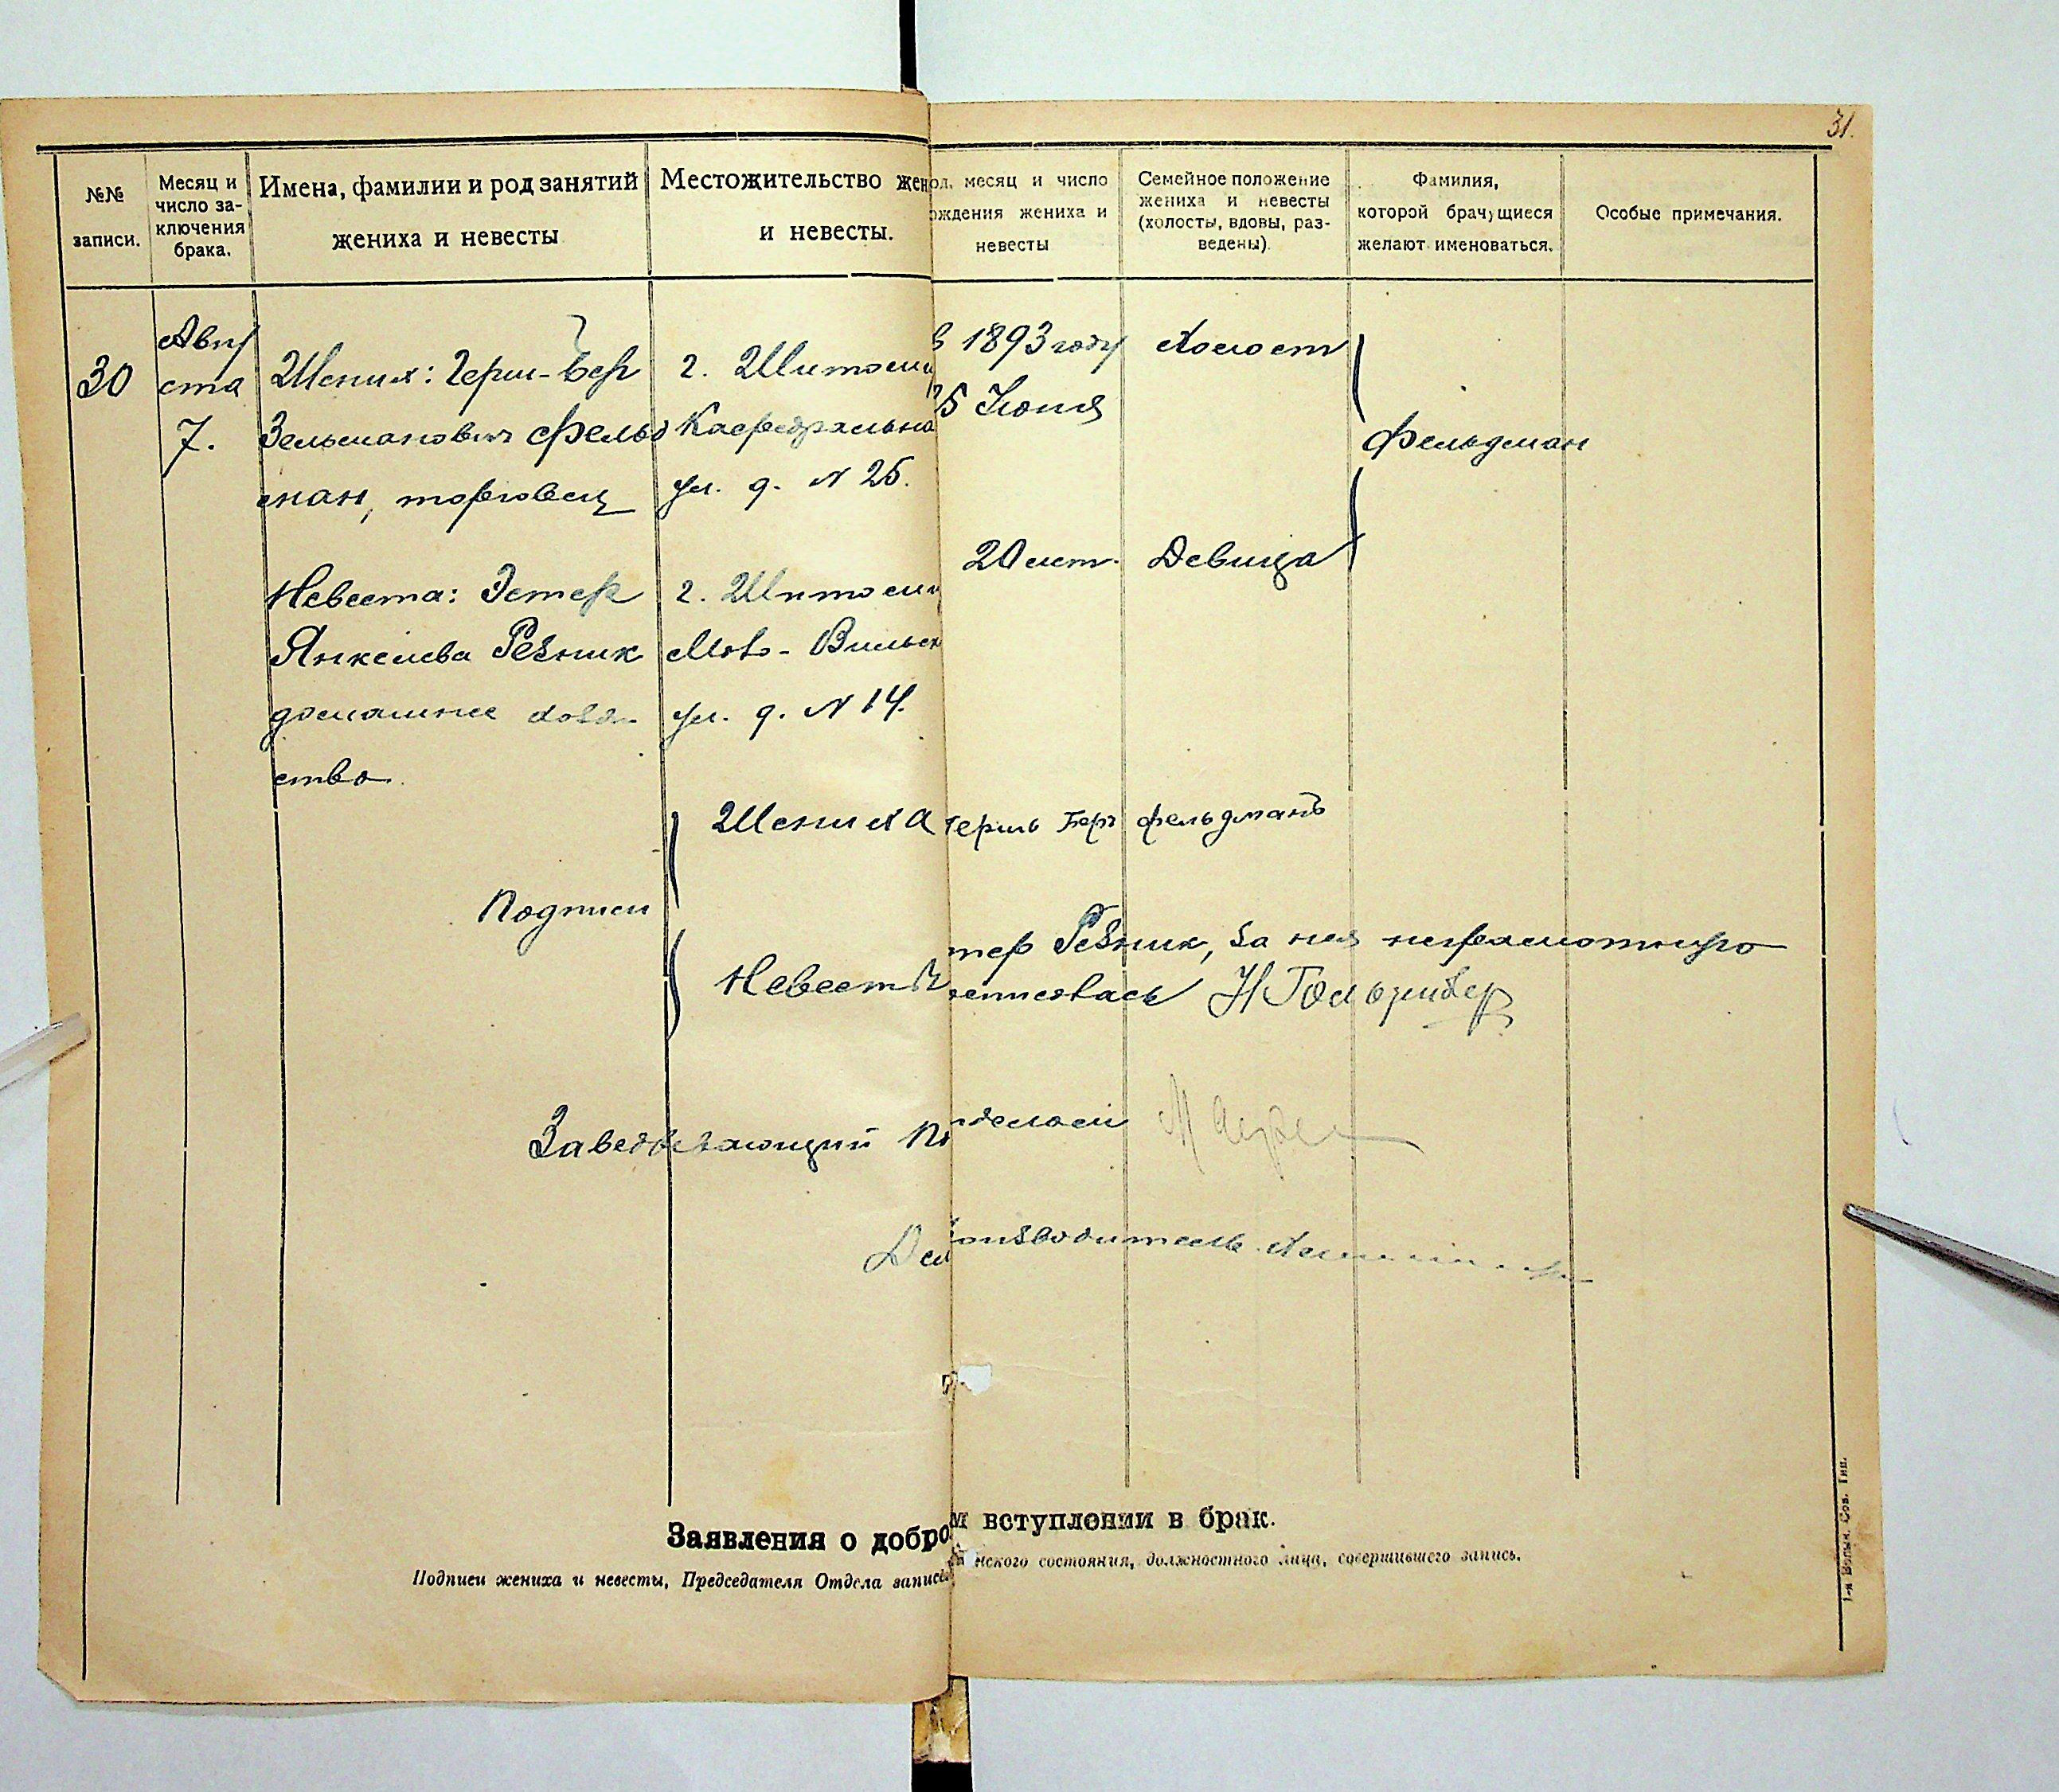 31.
№№ записи.
Месяц и число за-ключения брака.
Имена, фамилии и род занятий
жениха и невесты
Местожительство жен
и невесты.
од, месяц и число
ождения жениха и
невесты
Семейное положение
жениха и невесты
(холосты, вдовы, раз-
ведены).
Фамилия,
которой брачущиеся
желают именоваться.
Особые примечания.
30
Авгу
ста
7.
Жених: Герш-Бер
Зельманович Фельд
ман, торговец
г. Житоми
Кафедральна
ул. д. № 25.
в 1893 году
25 Июня
Холост
Фельдман
Невеста: Эстер
Янкелева Резник
домашнее хозяй
ство.
г. Житоми
Мало-Вильск
ул. д. № 14.
20 лет.
Девица
Подписи
Жениха Герш Бер Фельдманъ
Невесты
тер Резник, за нея неграмотную
расписалась
Заведывающий По
отделом
Дел
оизводитель
Заявления о добро
м вступлении в брак.
Подписи жениха и невесты, Председателя Отдела записе
нского состояния, должностного лица, совершившего запись.
1-я Волын. Сов. Тип.